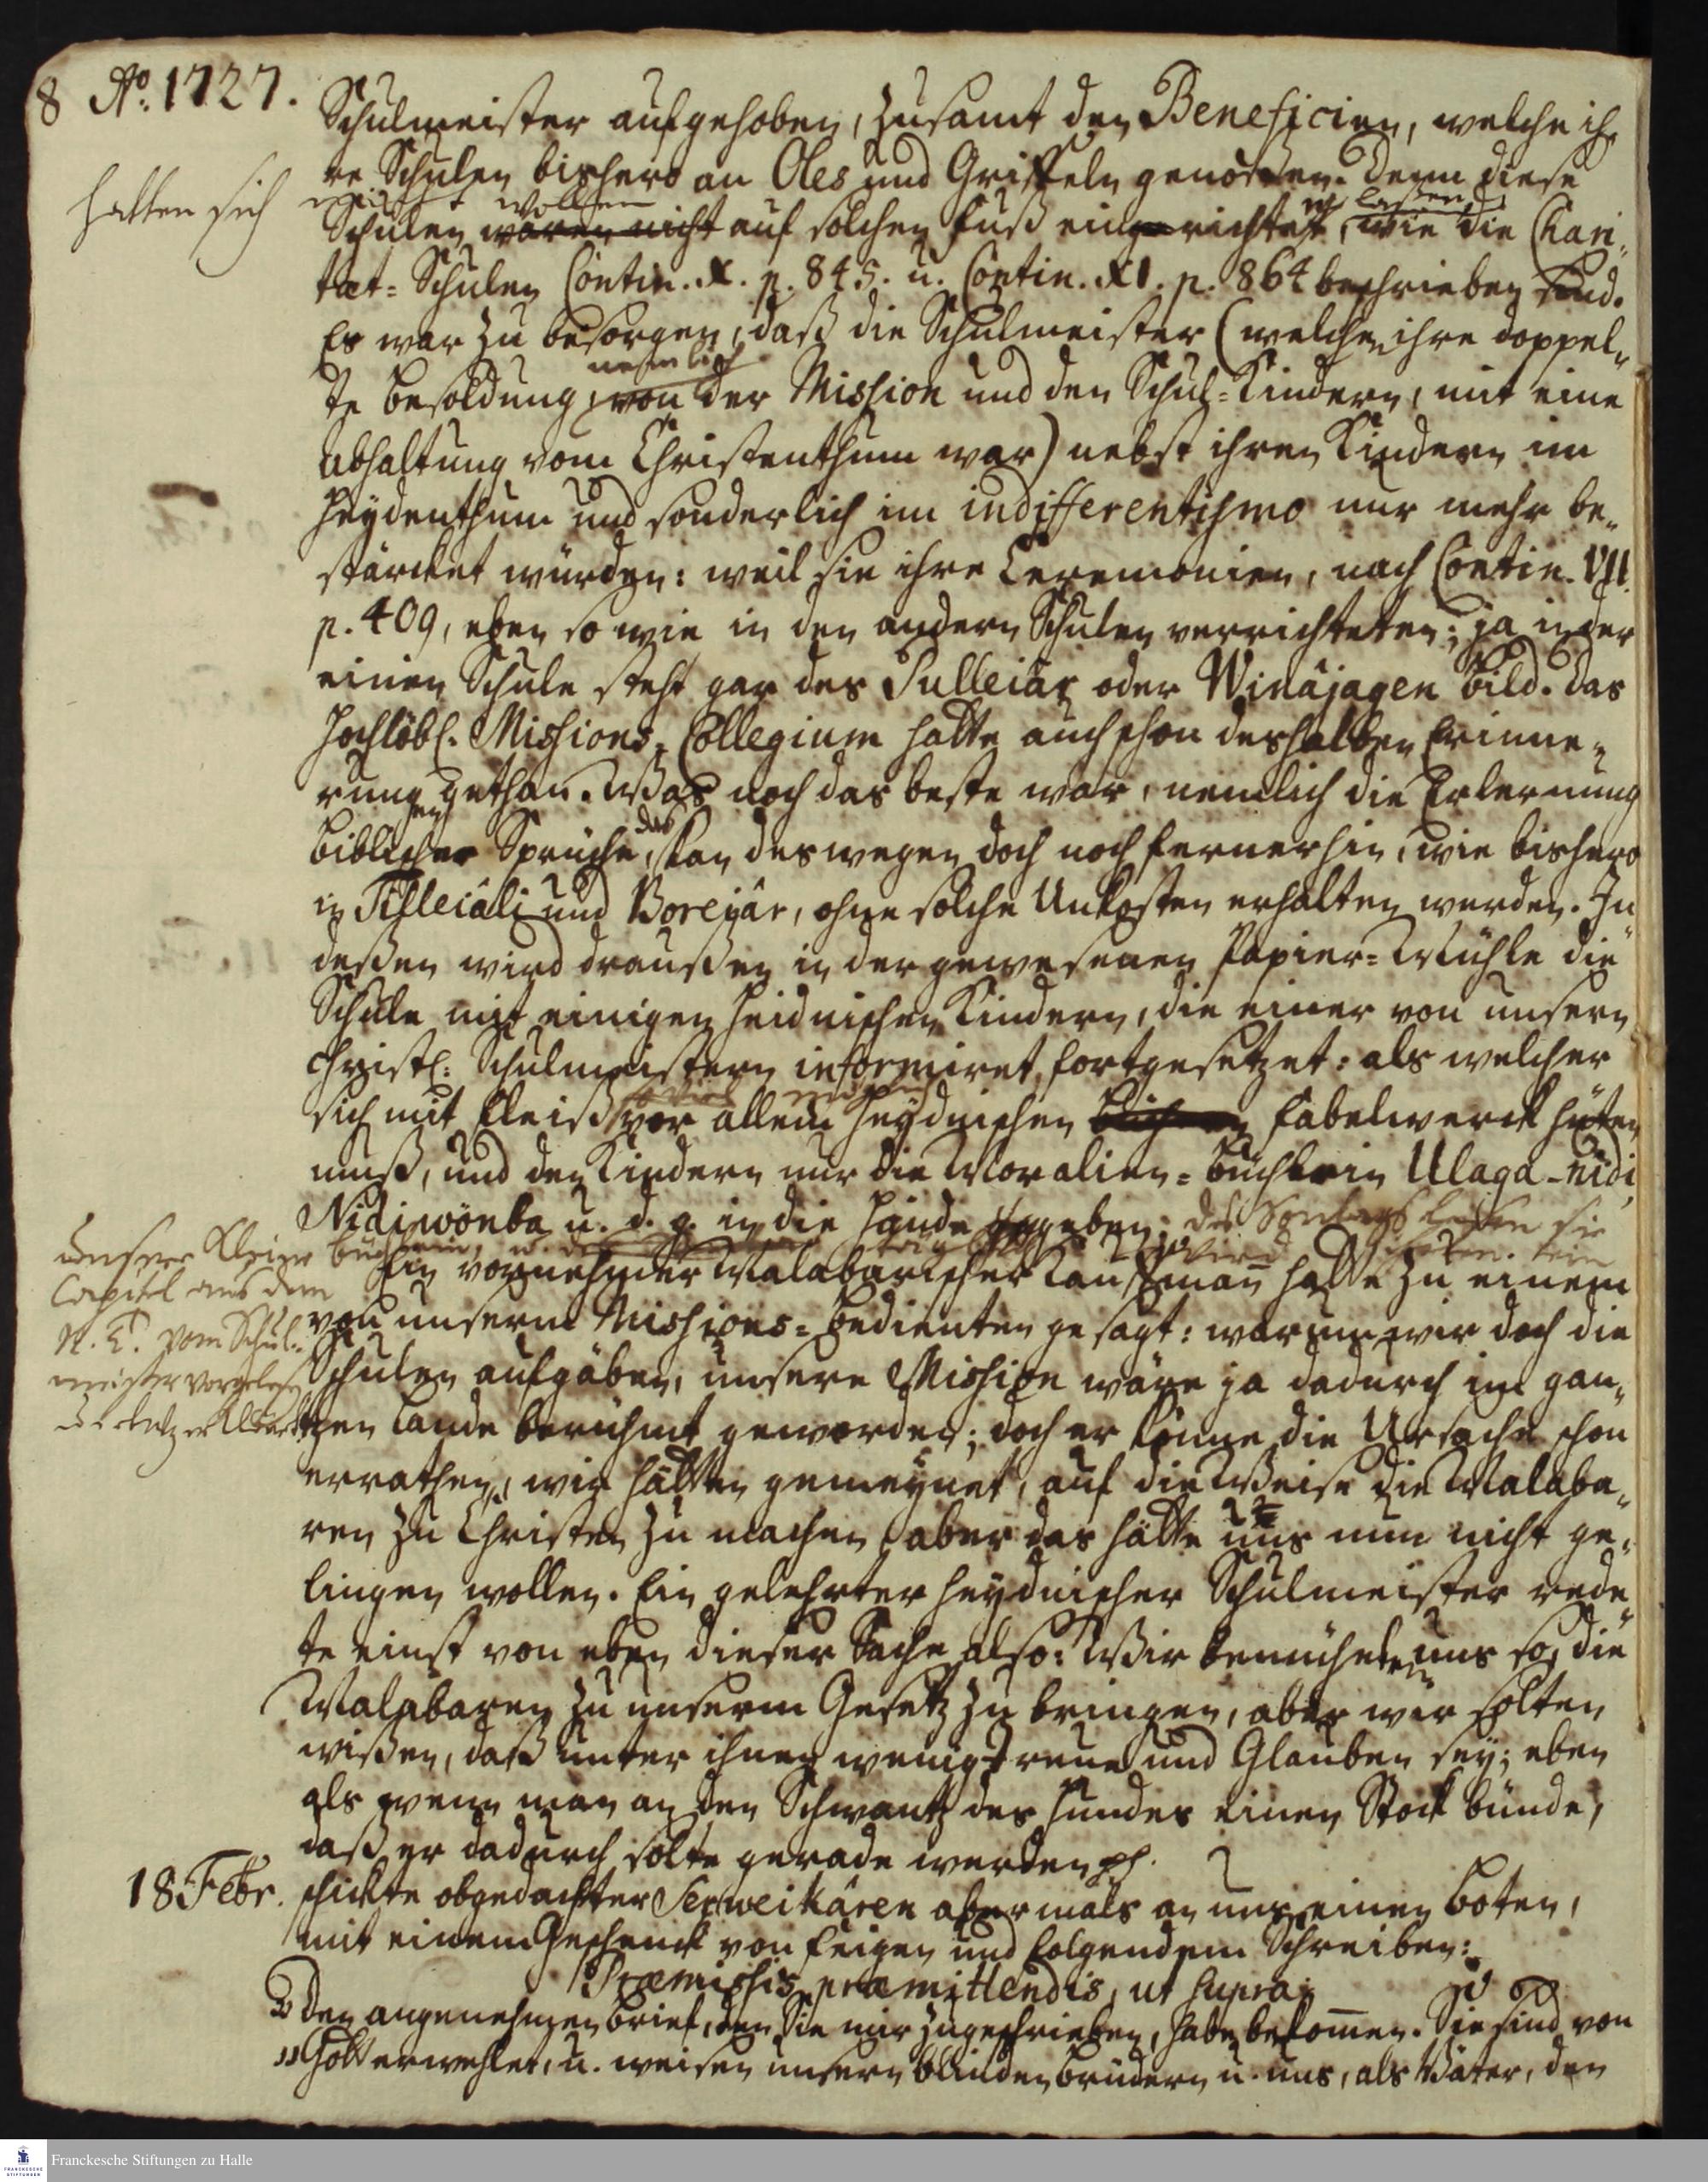 8 Aº. 1727.
Schulmeister aufgehoben, zusamt den Beneficien, welche ih
re Schulen bishero an Oles und Griffeln genossen. Denn diese
hatten sich nicht wollen
Schulen waren nicht auf solchen Fuß eingerichtet, lassen, wie die Chari-
tæt-Schulen Contin. X. p. 845. u. Contin. XI. p. 864 beschrieben sind.
Es war zu besorgen, daß die Schulmeister (welchen ihre doppel-
nemlich
te Besoldung, von der Mission und den Schul-Kindern, mit eine
Abhaltung vom Christenthum war) nebst ihren Kindern im
Heydenthum und sonderlich im indifferentismo nur mehr be-
stärcket würden: weil sie ihre Ceremonien, nach Contin. VII.
p. 409, eben so wie in den andern Schulen verrichteten; ja in der
einen Schule steht gar des Pulleiâr oder Winâjagen Bild. Das
Hochlöbl. Missions-Collegium hatte auch schon deshalben Erinne-
rung gethan. Was noch das beste war, nemlich die Erlernung
biblischer Sprüche, das kan deswegen doch noch fernerhin, wie bishero
in Tilleiâli und Boreiâr, ohne solche Unkosten erhalten werden. In-
deßen wird draußen in der gewesenen Papier-Mühle die
Schule mit einigen heidnischen Kindern, die einer von unsern
Christl. Schulmeistern informiret, fortgesetzet: als welcher
so viel möglich
sich mit Fleiß vor allem heydnischen Fabelwerck hüten
muß, und den Kindern nur die Moralien-Büchlein Ulaga-nidi,
Nidiwönba u. d. g. in die Hände gegeben; des Sontags lesen sie
unsere kleine Büchlein, u. wird ein
Capitel aus dem
N. T. vom Schul-
meister vorgelesen
Ein vornehmer Malabarischer Kaufmañ hatte zu einem
von unserm Missions-Bedienten gesagt: warum wir doch die
Schulen aufgäben, unsere Mission wäre ja dadurch im gan-
tzen Lande berühmt geworden; doch er könne die Ursache schon
errathen, wir hätten gemeynet, auf die Weise die Malaba-
ren zu Christen zu machen, aber das hätte uns nun nicht ge-
lingen wollen. Ein gelehrter heydnischer Schulmeister rede-
te einst von eben dieser Sache also: Wir bemüheten uns so, die
Malabaren zu unserm Gesetz zu bringen, aber wir solten
wißen, daß unter ihnen wenig Treue und Glauben sey; eben
als wenn man an den Schwantz des Hundes einen Stock bünde,
daß er dadurch solte gerade werden pp.
18 Febr. schickte obgedachter Serweikâren abermals an uns einen Boten,
mit einem Geschenck von Feigen und folgendem Schreiben:
Præmissis præmittendis, ut supra;
Den angenehmen Brief, den Sie mir zugeschrieben, habe bekom̃en. Sie sind von
"Gott erwehlet, u. weisen unsern blinden Brüdern u. uns, als Väter, den
Franckesche Stiftungen zu Halle